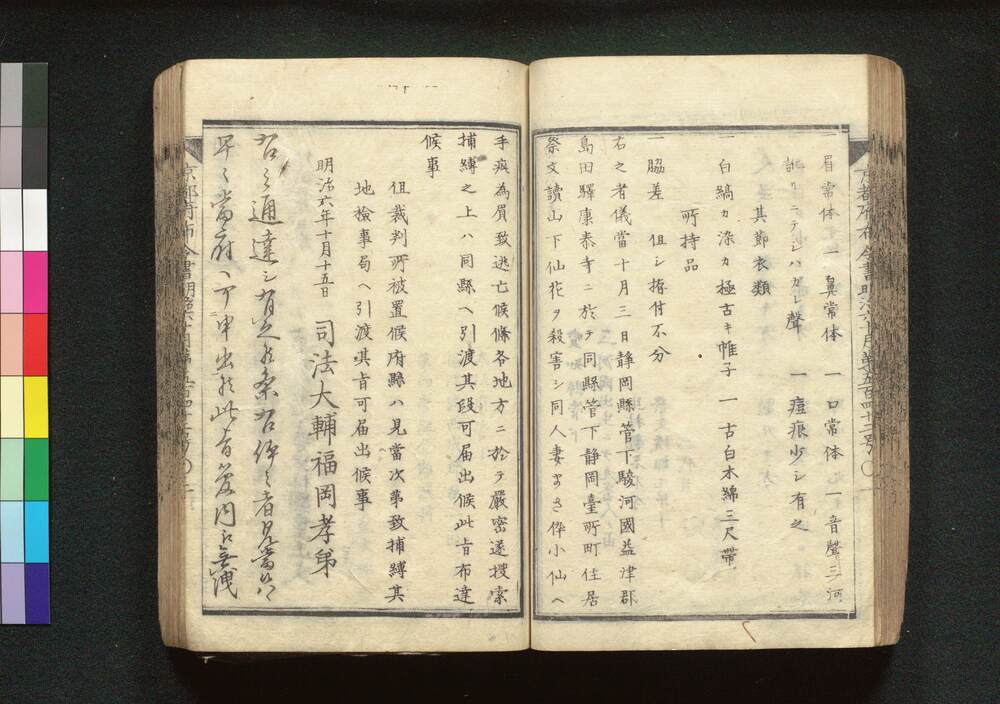 一眉常体 一鼻常体 一口常体 一音聲三河
訛リニテシハガレ聲 一痘痕少シ有之
其節衣類
一白縞カ染カ極古キ帷子 一古白木綿三尺帯
所持品
一脇差 但シ拵付不分
右之者儀當十月三日静岡縣管下駿河國益津郡
島田驛康泰寺ニ於テ同縣管下静岡臺所町住居
祭文讀山下仙花ヲ殺害シ同人妻まさ倅小仙ヘ
手疵為負致逃亡候條各地方ニ於テ嚴密遂捜索
捕縛之上ハ同縣ヘ引渡其段可届出候此旨布達
候事
但裁判所被置候府縣ハ見當次第致捕縛其
地檢事局ヘ引渡其旨可届出候事
明治六年十月十五日 司法大輔福岡孝弟
右之通達シ有之候条右伴之者見當ハ
早々當府ヘ可申出候此旨管内江無洩
京都府布令書明治六年十月第五百四十二号